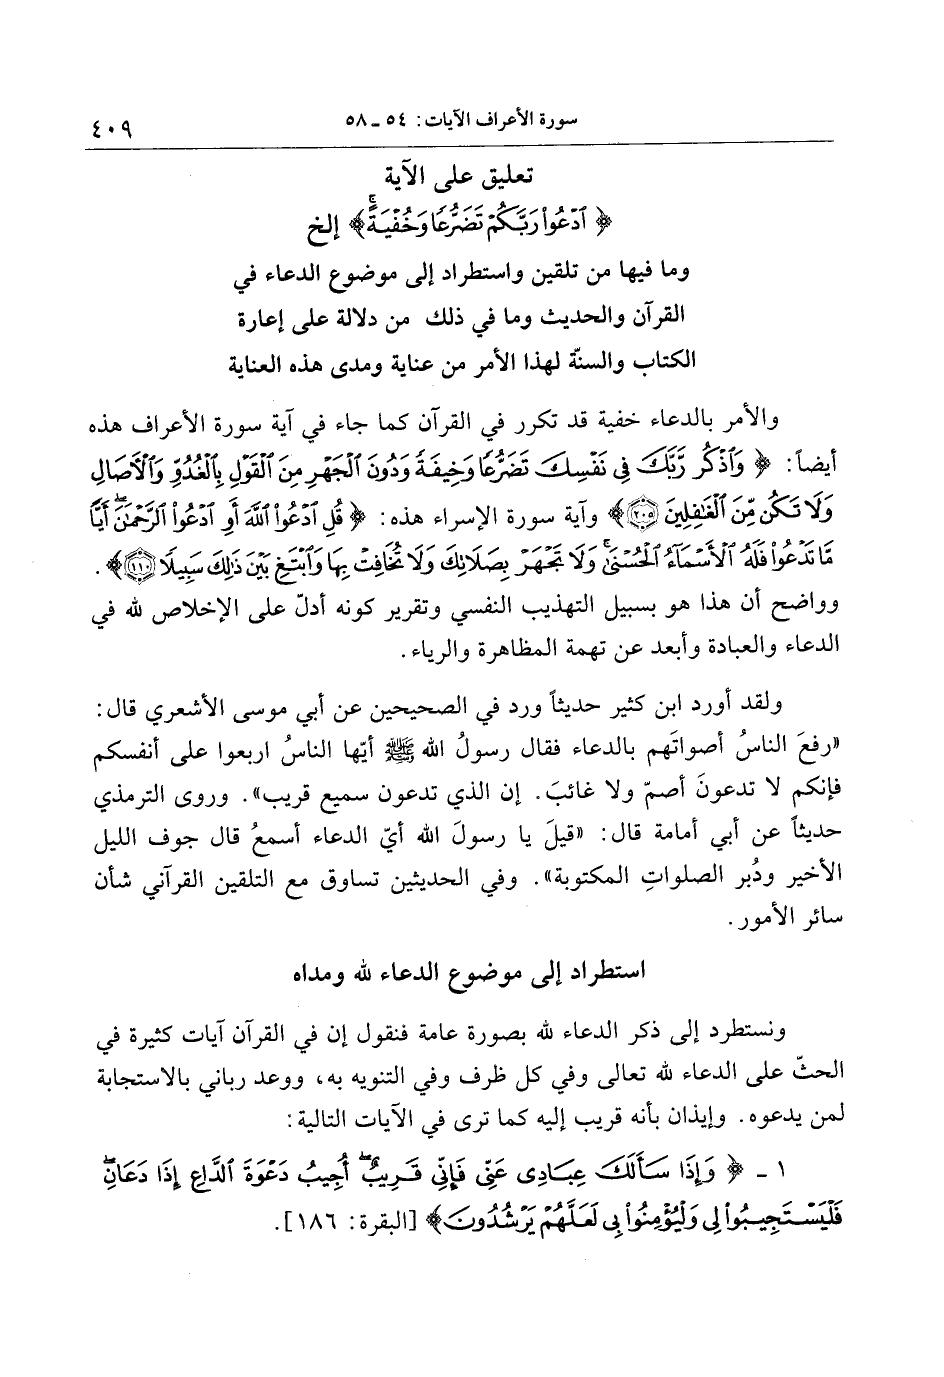 سورة الأعراف الآيات: ٥٤ ـ ٥٨
٤٠٩
تعليق على الآية
﴿ ٱدْعُوا۟ رَبَّكُمْ تَضَرُّعًا وَخُفْيَةً ۚ ﴾ إلخ
وما فيها من تلقين واستطراد إلى موضوع الدعاء في
القرآن والحديث وما في ذلك من دلالة على إعارة
الكتاب والسنّة لهذا الأمر من عناية ومدى هذه العناية
والأمر بالدعاء خفية قد تكرر في القرآن كما جاء في آية سورة الأعراف هذه
أيضاً: ﴿ وَٱذْكُر رَّبَّكَ فِى نَفْسِكَ تَضَرُّعًا وَخِيفَةً وَدُونَ ٱلْجَهْرِ مِنَ ٱلْقَوْلِ بِٱلْغُدُوِّ وَٱلْأَصَالِ
وَلَا تَكُن مِّنَ ٱلْغَٰفِلِينَ ٢٠٥ ﴾ وآية سورة الإسراء هذه: ﴿ قُلِ ٱدْعُوا۟ ٱللَّهَ أَوِ ٱدْعُوا۟ ٱلرَّحْمَٰنَ ۖ أَيًّا
مَّا تَدْعُوا۟ فَلَهُ ٱلْأَسْمَآءُ ٱلْحُسْنَىٰ ۚ وَلَا تَجْهَرْ بِصَلَاتِكَ وَلَا تُخَافِتْ بِهَا وَٱبْتَغِ بَيْنَ ذَٰلِكَ سَبِيلًا ١١٠ ﴾.
وواضح أن هذا هو بسبيل التهذيب النفسي وتقرير كونه أدلّ على الإخلاص لله في
الدعاء والعبادة وأبعد عن تهمة المظاهرة والرياء.
ولقد أورد ابن كثير حديثاً ورد في الصحيحين عن أبي موسى الأشعري قال:
«رفعَ الناسُ أصواتَهم بالدعاء فقال رسولُ الله ﷺ أيّها الناسُ اربعوا على أنفسكم
فإنكم لا تدعونَ أصمّ ولا غائبَ. إن الذي تدعون سميع قريب». وروى الترمذي
حديثاً عن أبي أمامة قال: «قيلَ يا رسولَ الله أيّ الدعاء أسمعُ قال جوف الليل
الأخير ودُبر الصلواتِ المكتوبة». وفي الحديثين تساوق مع التلقين القرآني شأن
سائر الأمور.
استطراد إلى موضوع الدعاء لله ومداه
ونستطرد إلى ذكر الدعاء لله بصورة عامة فنقول إن في القرآن آيات كثيرة في
الحثّ على الدعاء لله تعالى وفي كل ظرف وفي التنويه به، ووعد رباني بالاستجابة
لمن يدعوه. وإيذان بأنه قريب إليه كما ترى في الآيات التالية:
١ ـ ﴿ وَإِذَا سَأَلَكَ عِبَادِى عَنِّى فَإِنِّى قَرِيبٌ ۖ أُجِيبُ دَعْوَةَ ٱلدَّاعِ إِذَا دَعَانِ ۖ
فَلْيَسْتَجِيبُوا۟ لِى وَلْيُؤْمِنُوا۟ بِى لَعَلَّهُمْ يَرْشُدُونَ ﴾ [البقرة: ١٨٦].